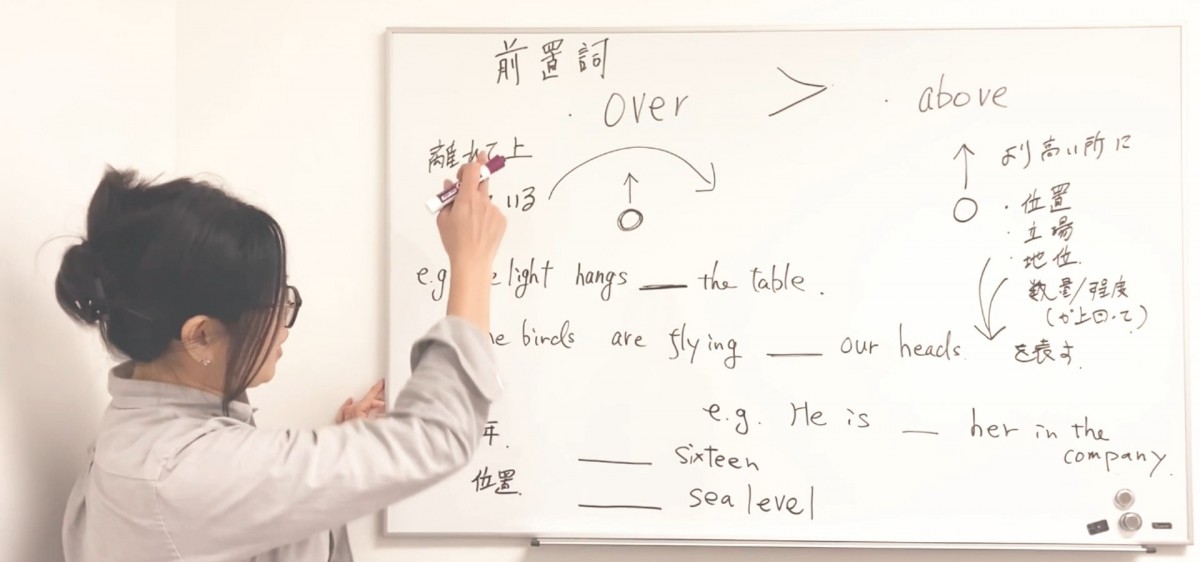 前置詞
· over > · above
離れて上
いる
より高い所に
· 位置
· 立場
· 地位
数量/程度
(が上回って)
を表す.
e.g. light hangs __ the table.
birds are flying __ our heads.
e.g. He is __ her in the
company.
年. __ sixteen
位置. __ sea level